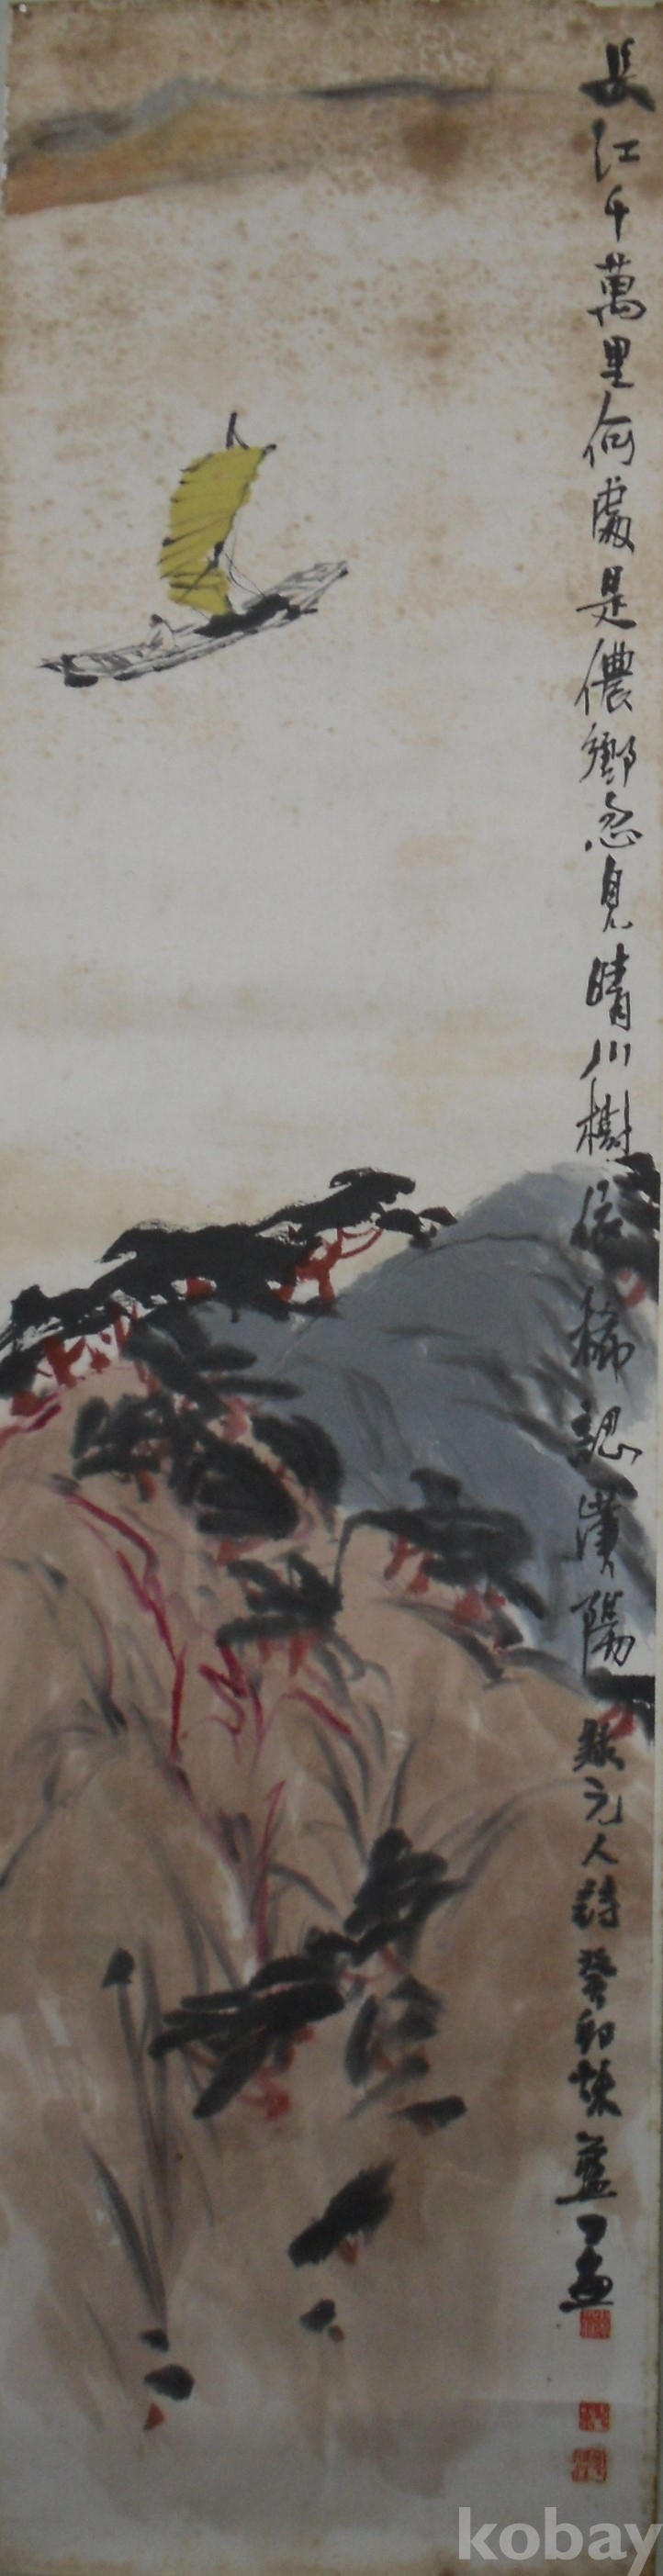 長江千萬里何處是儂鄉忽見晴川樹依稀認漢陽
錄元人詩癸卯秋藍
kobay